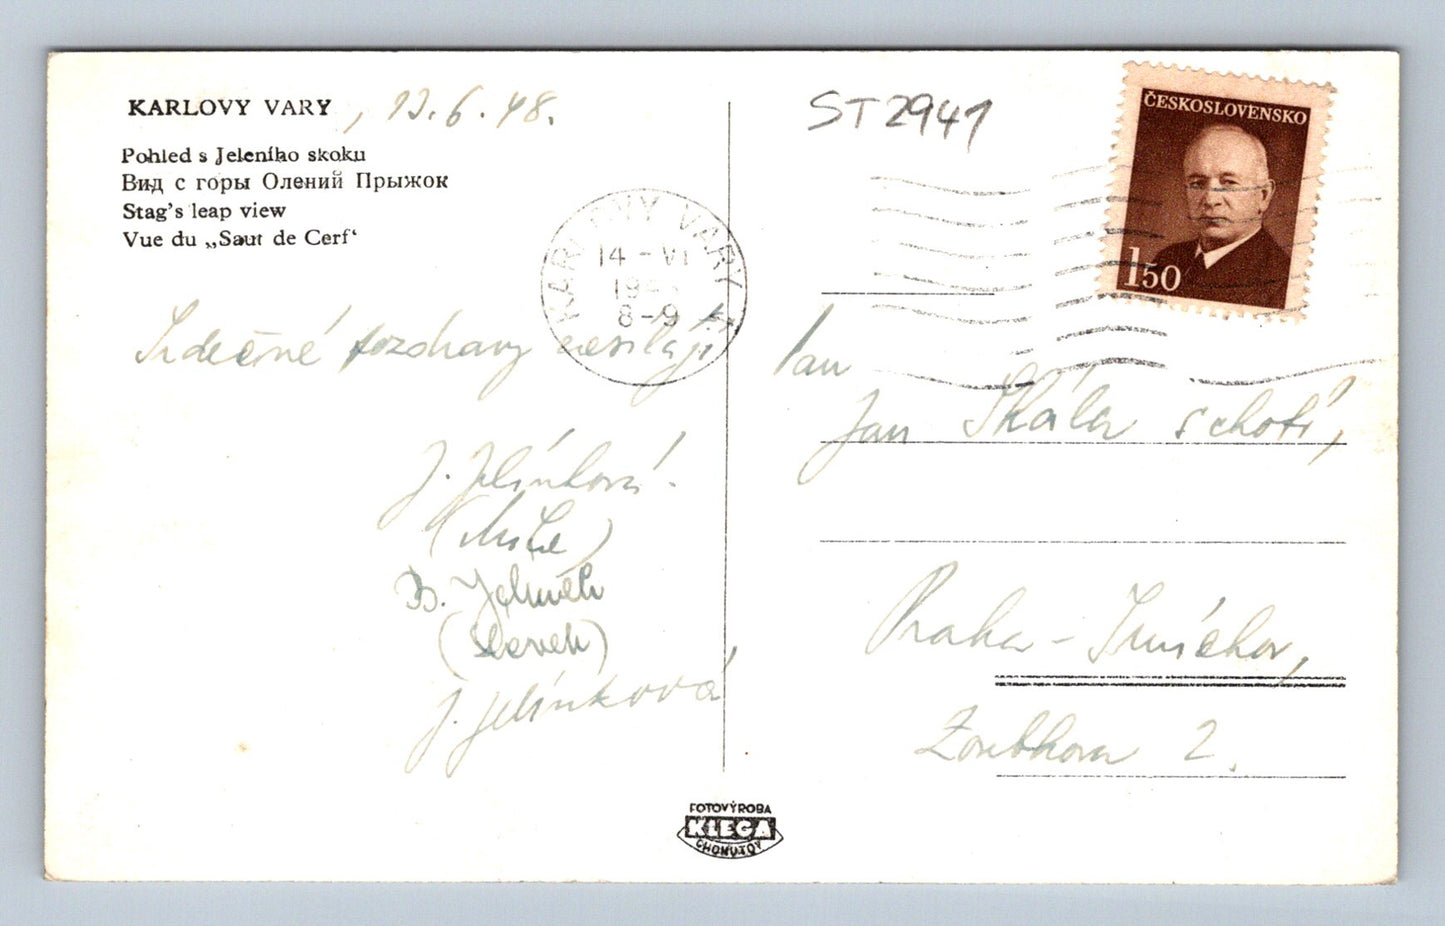 KARLOVY VARY, 13.6.48.
Pohled s Jeleního skoku
Вид с горы Олений Прыжок
Stag's leap view
Vue du „Saut de Cerf‘
ST2941
ČESKOSLOVENSKO
1.50
KARLOVY VARY
14 - VI
8-9
Srdečné pozdravy zasílají
J. Jelínková.
B. Jelínek
J. Jelínková
Pan
Jan Skála s chotí,
Praha - Smíchov,
Zborovská 2.
FOTOVÝROBA
KLEGA
CHOMUTOV